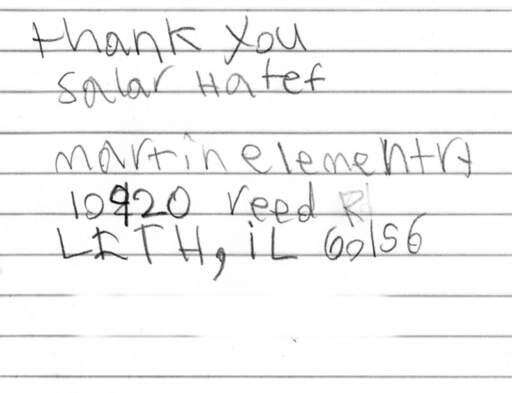 thank you
salar Hatef
martin elementry
10920 reed R
LITH, iL 60156